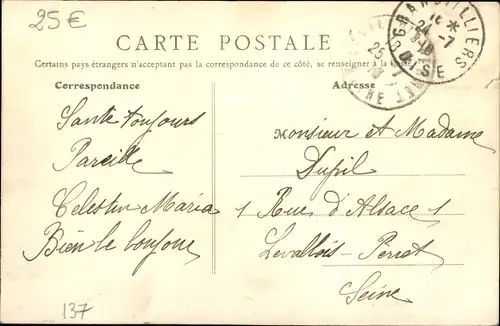 25€
CARTE POSTALE
Certains pays étrangers n'acceptant pas la correspondance de ce côté, se renseigner à la Poste
Correspondance
Adresse
GRANDVILLIERS
24-7
OISE
25
Sante toujours
Pareille
Celestin Maria
Bien le bonjour
Monsieur et Madame
Dupil
1 Rue d'Alsace 1
Levallois-Perret
Seine
137